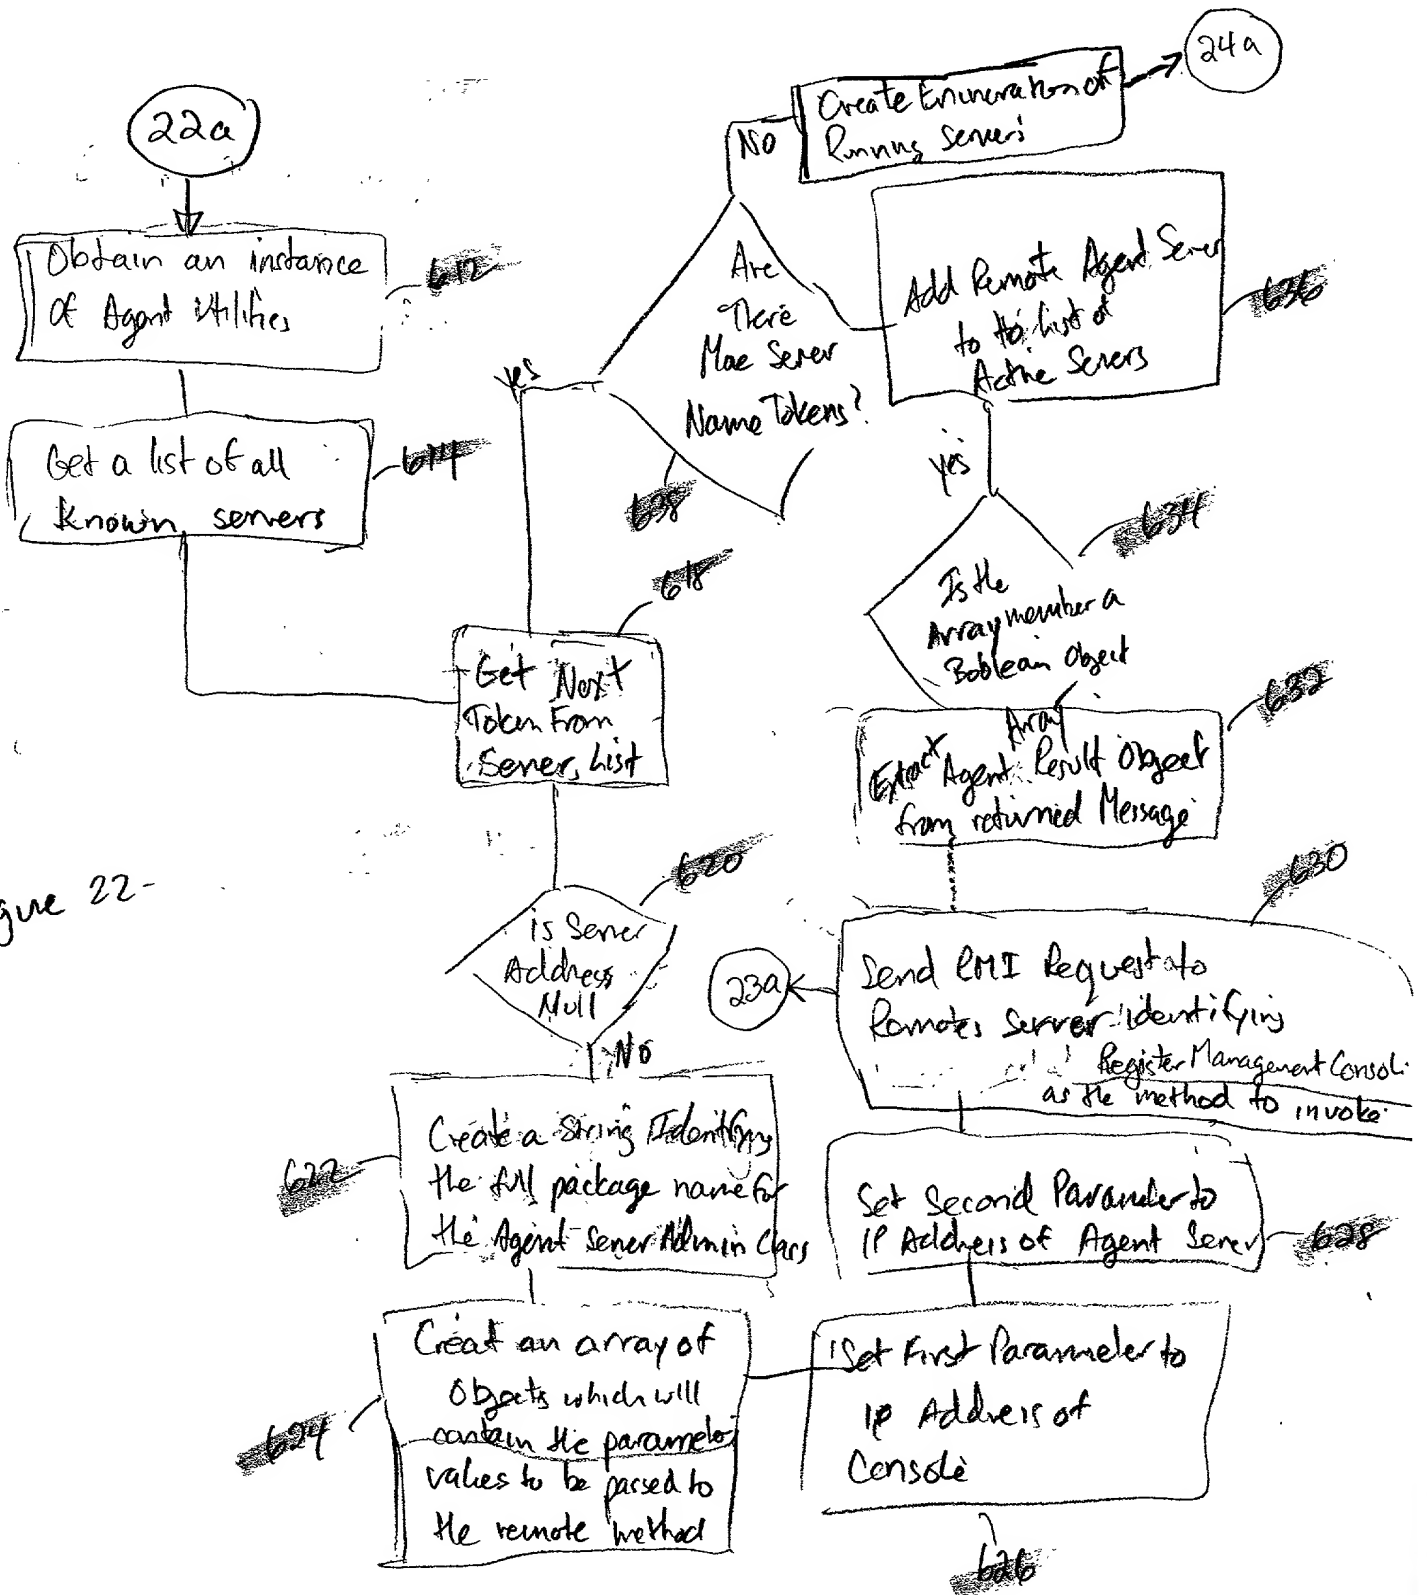 22a
Obtain an instance
Of Agent Utilities
612
Get a list of all
Known servers
614
Get Next
Token From
Server List
618
is Server
Address
Null
620
No
Create a String Identifying
the full package name for
the Agent Server Admin Class
622
Creat an array of
Objects which will
contain the parameter
values to be parsed to
the remote method
624
Set First Parameter to
IP Address of
Console
626
Set Second Parameter to
IP Address of Agent Server
628
Send RMI Request to
Remote Server identifying
Register Management Consol
as the method to invoke
630
23a
Extract Agent Array Result Object
from returned Message
632
Is the
Array member a
Boolean Object
634
yes
Add Remote Agent Server
to list of
Active Servers
636
Are
There
Moe Server
Name Tokens?
638
yes
No
Create Enumeration of
Running Servers
24a
gure 22-